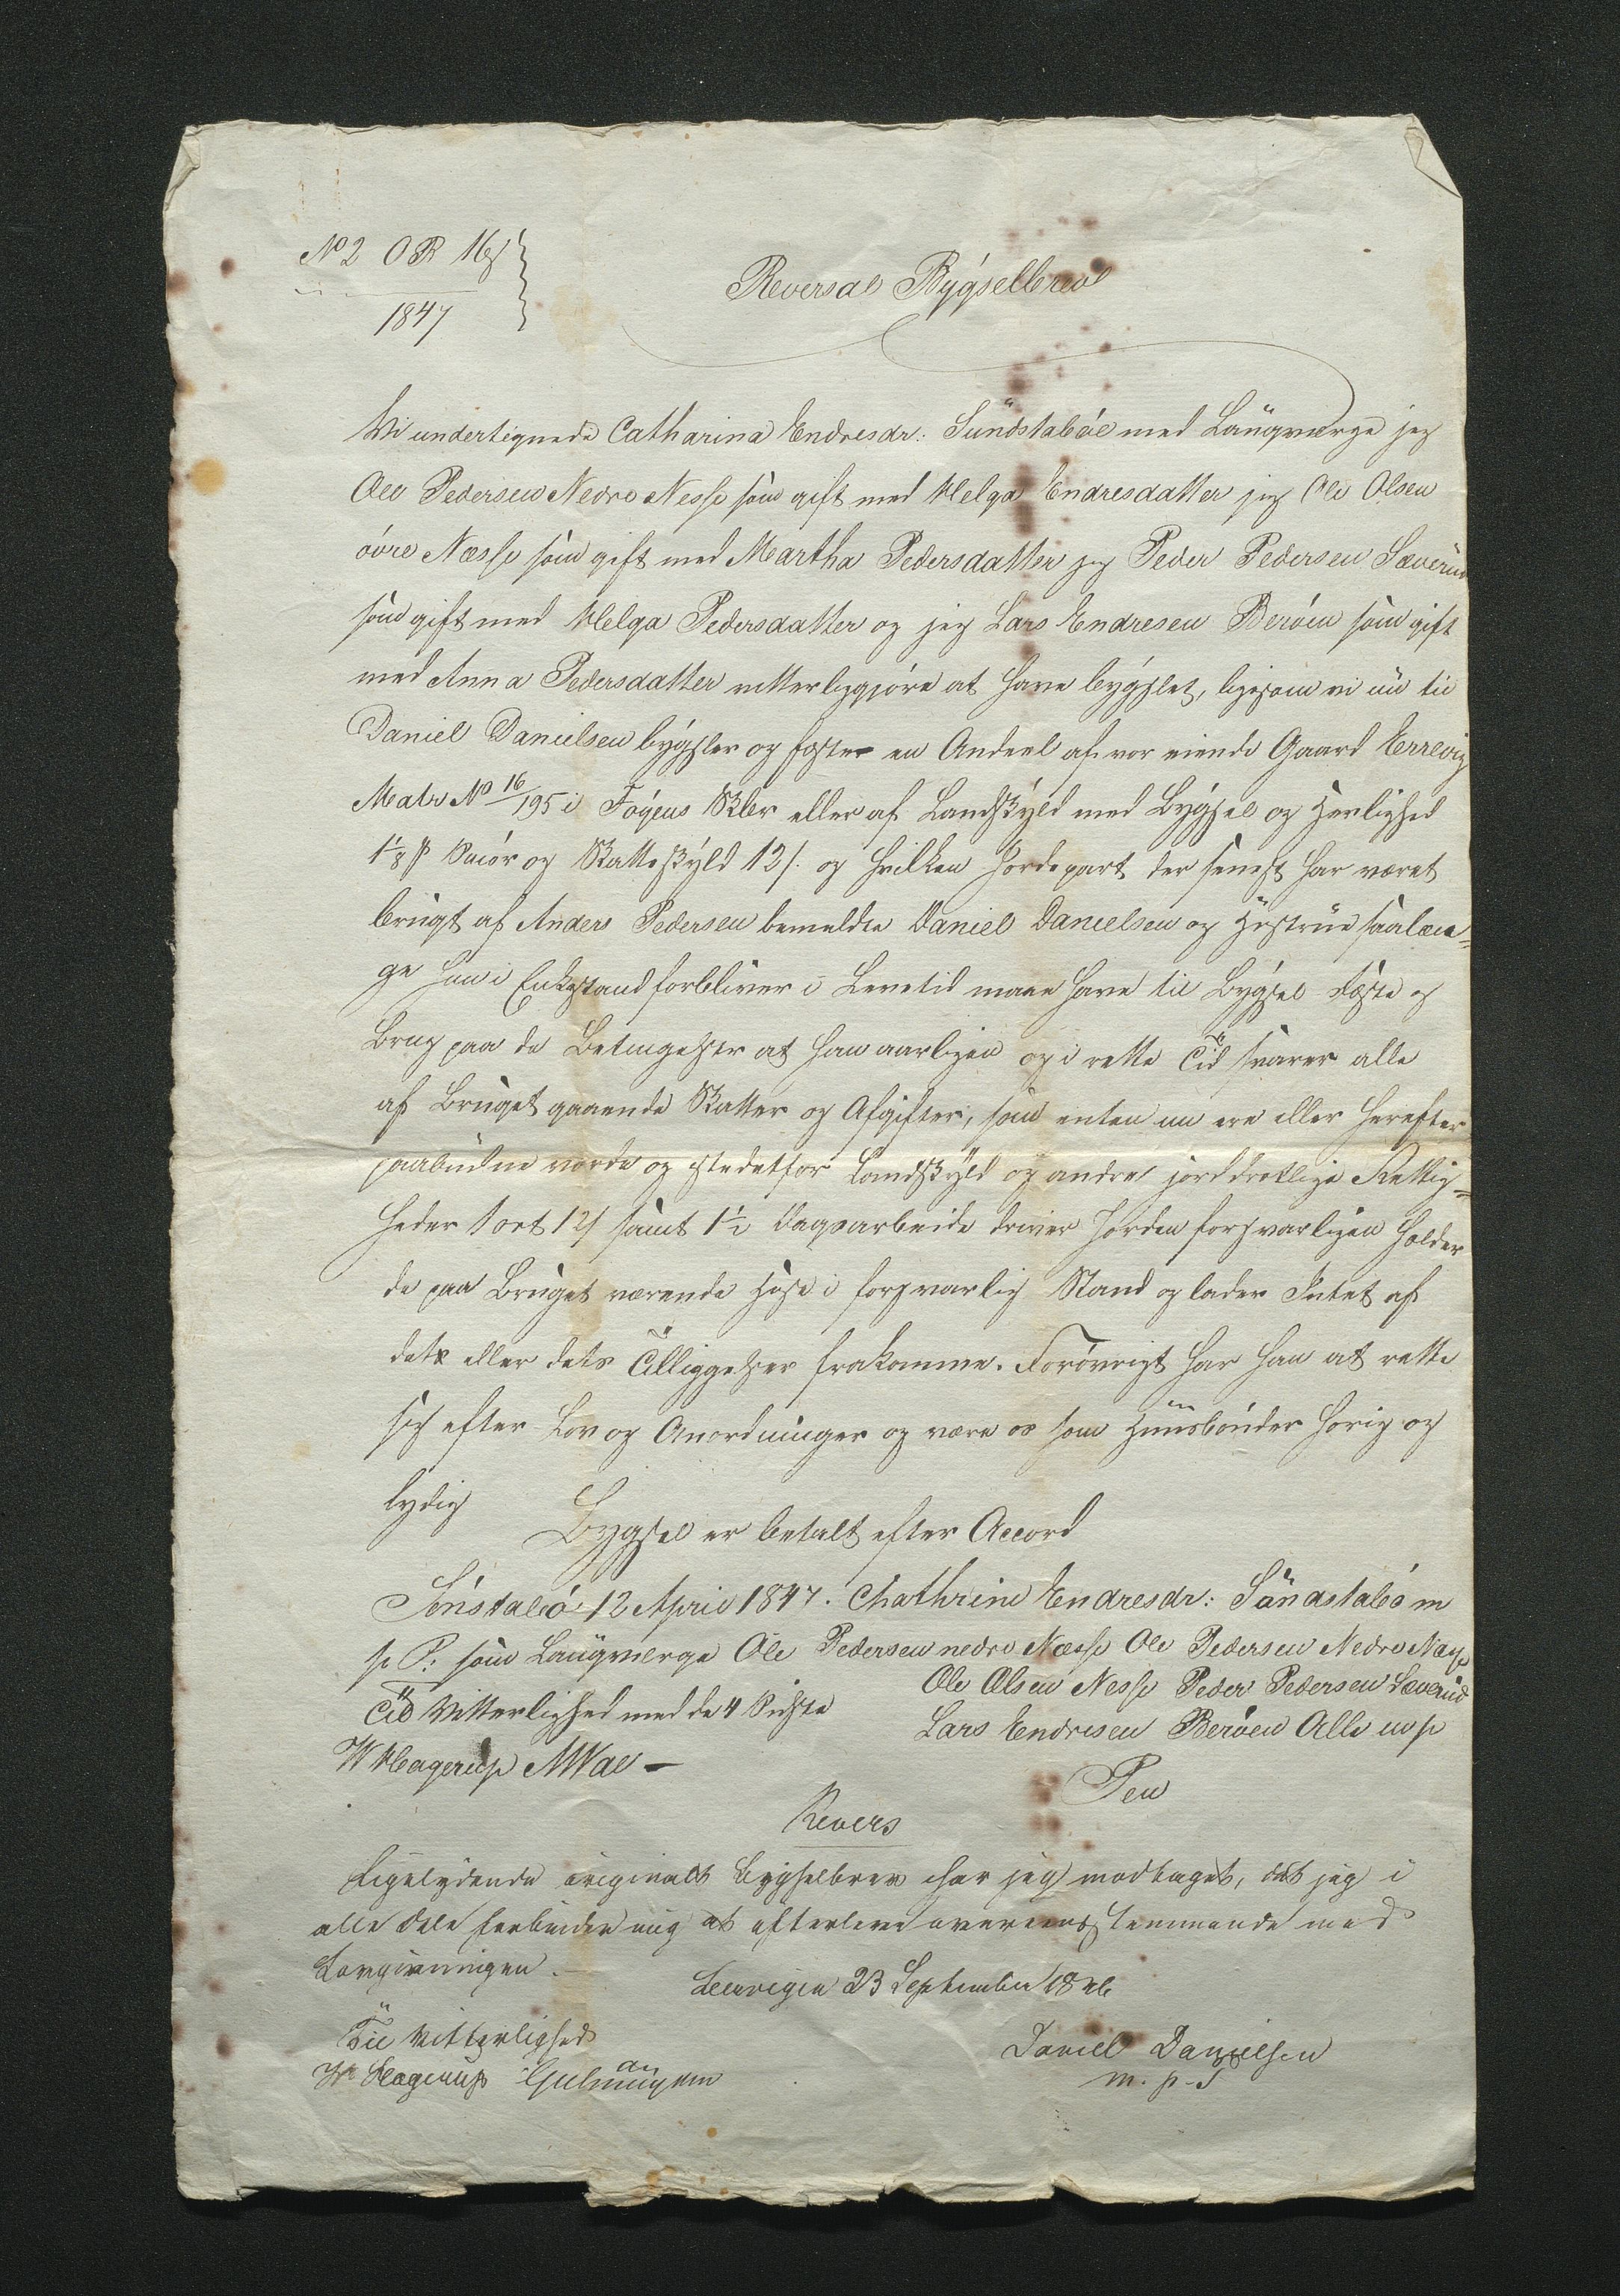 No 2 O R 16 s
1847
Reversal Bÿgselbrev
Vi undertegnede Catharina Endresdr: Sundstabøe med Laugværge jeg
Ole Pedersen Nedre Nesse som gift med Helga Endresdatter jeg Ole Olsen
øvre Næsse som gift med Martha Pedersdatter jeg Peder Pedersen Sæverud
som gift med Helga Pedersdatter og jeg Lars Endresen Berøen som gift
med Anna Pedersdatter vitterliggjøre at have bÿgslet, ligesom vi nu til
Daniel Danielsen bÿgsler og fæster en Andeel af vor eiende Gaard Errevig
Matr No 16/195 i Føÿens Skbr eller af Landskÿld med Bÿgsel og Herlighed
1/8 p Smør og Skatteskÿld 12 s. og hvilken Jordepart der senest har været
brugt af Anders Pedersen bemeldte Daniel Danielsen og Hustrue saalæn-
ge hun i Enkestand forbliver i Levetid maae have til Bÿgsel Fæste og
Brug paa de Betingelser at han aarligen og i rette Tid svarer alle
af Bruget gaaende Skatter og Afgifter, som enten nu ere eller herefter
paabudne vorde og istedetfor Landskÿld og andre jorddrotlige Rettig-
heder 1 ort 12 s samt 1½ Dagsarbeide driver Jorden forsvarligen holder
de paa Bruget værende Huse i forsvarlig Stand og lader Intet af
dets eller dets Tilliggelser frakomme. Forøvrigt har han at rette
sig efter Lov og Anordninger og være os som Huusbønder hørig og
lydig
Bygsel er betalt efter Accord
Sønstabø 12 April 1847. Chathrine Endresdr: Søndstabø m
p P: som Laugværge Ole Pedersen nedre Næsse Ole Pedersen Nedre Næsse
Til Vitterlighed med de 4 Sidste
Ole Olsen Nesse Peder Pedersen Sæverud
Lars Endresen Berøen Alle m p
W Hagerup MWae
Pen
Revers
Ligelydende originalt Bygselbrev har jeg modtaget, det jeg i
alle Dele forbinder mig at efterleve overeensstemmende med
Lovgivningen.
Leervigen 23 September 1846
Til Vitterlighed
W Hagerup
Daniel Danielsen
m. p. S